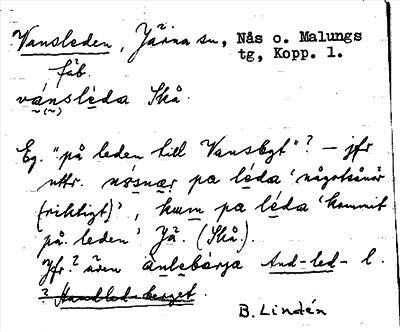 Vansleden, Järna sn, Nås o. Malungs
tg, Kopp. l.
fäb.
vánsléda Skå.
Eg. "på leden till Vansbyt"? – jfr
uttr. nósnær pa léda 'någotsånär
(riktigt)', kum pa léda 'kommit
på leden' Jä. (Skå.).
Jfr? även änlebärja And-led- l.
? Handled-berget.
B. Lindén